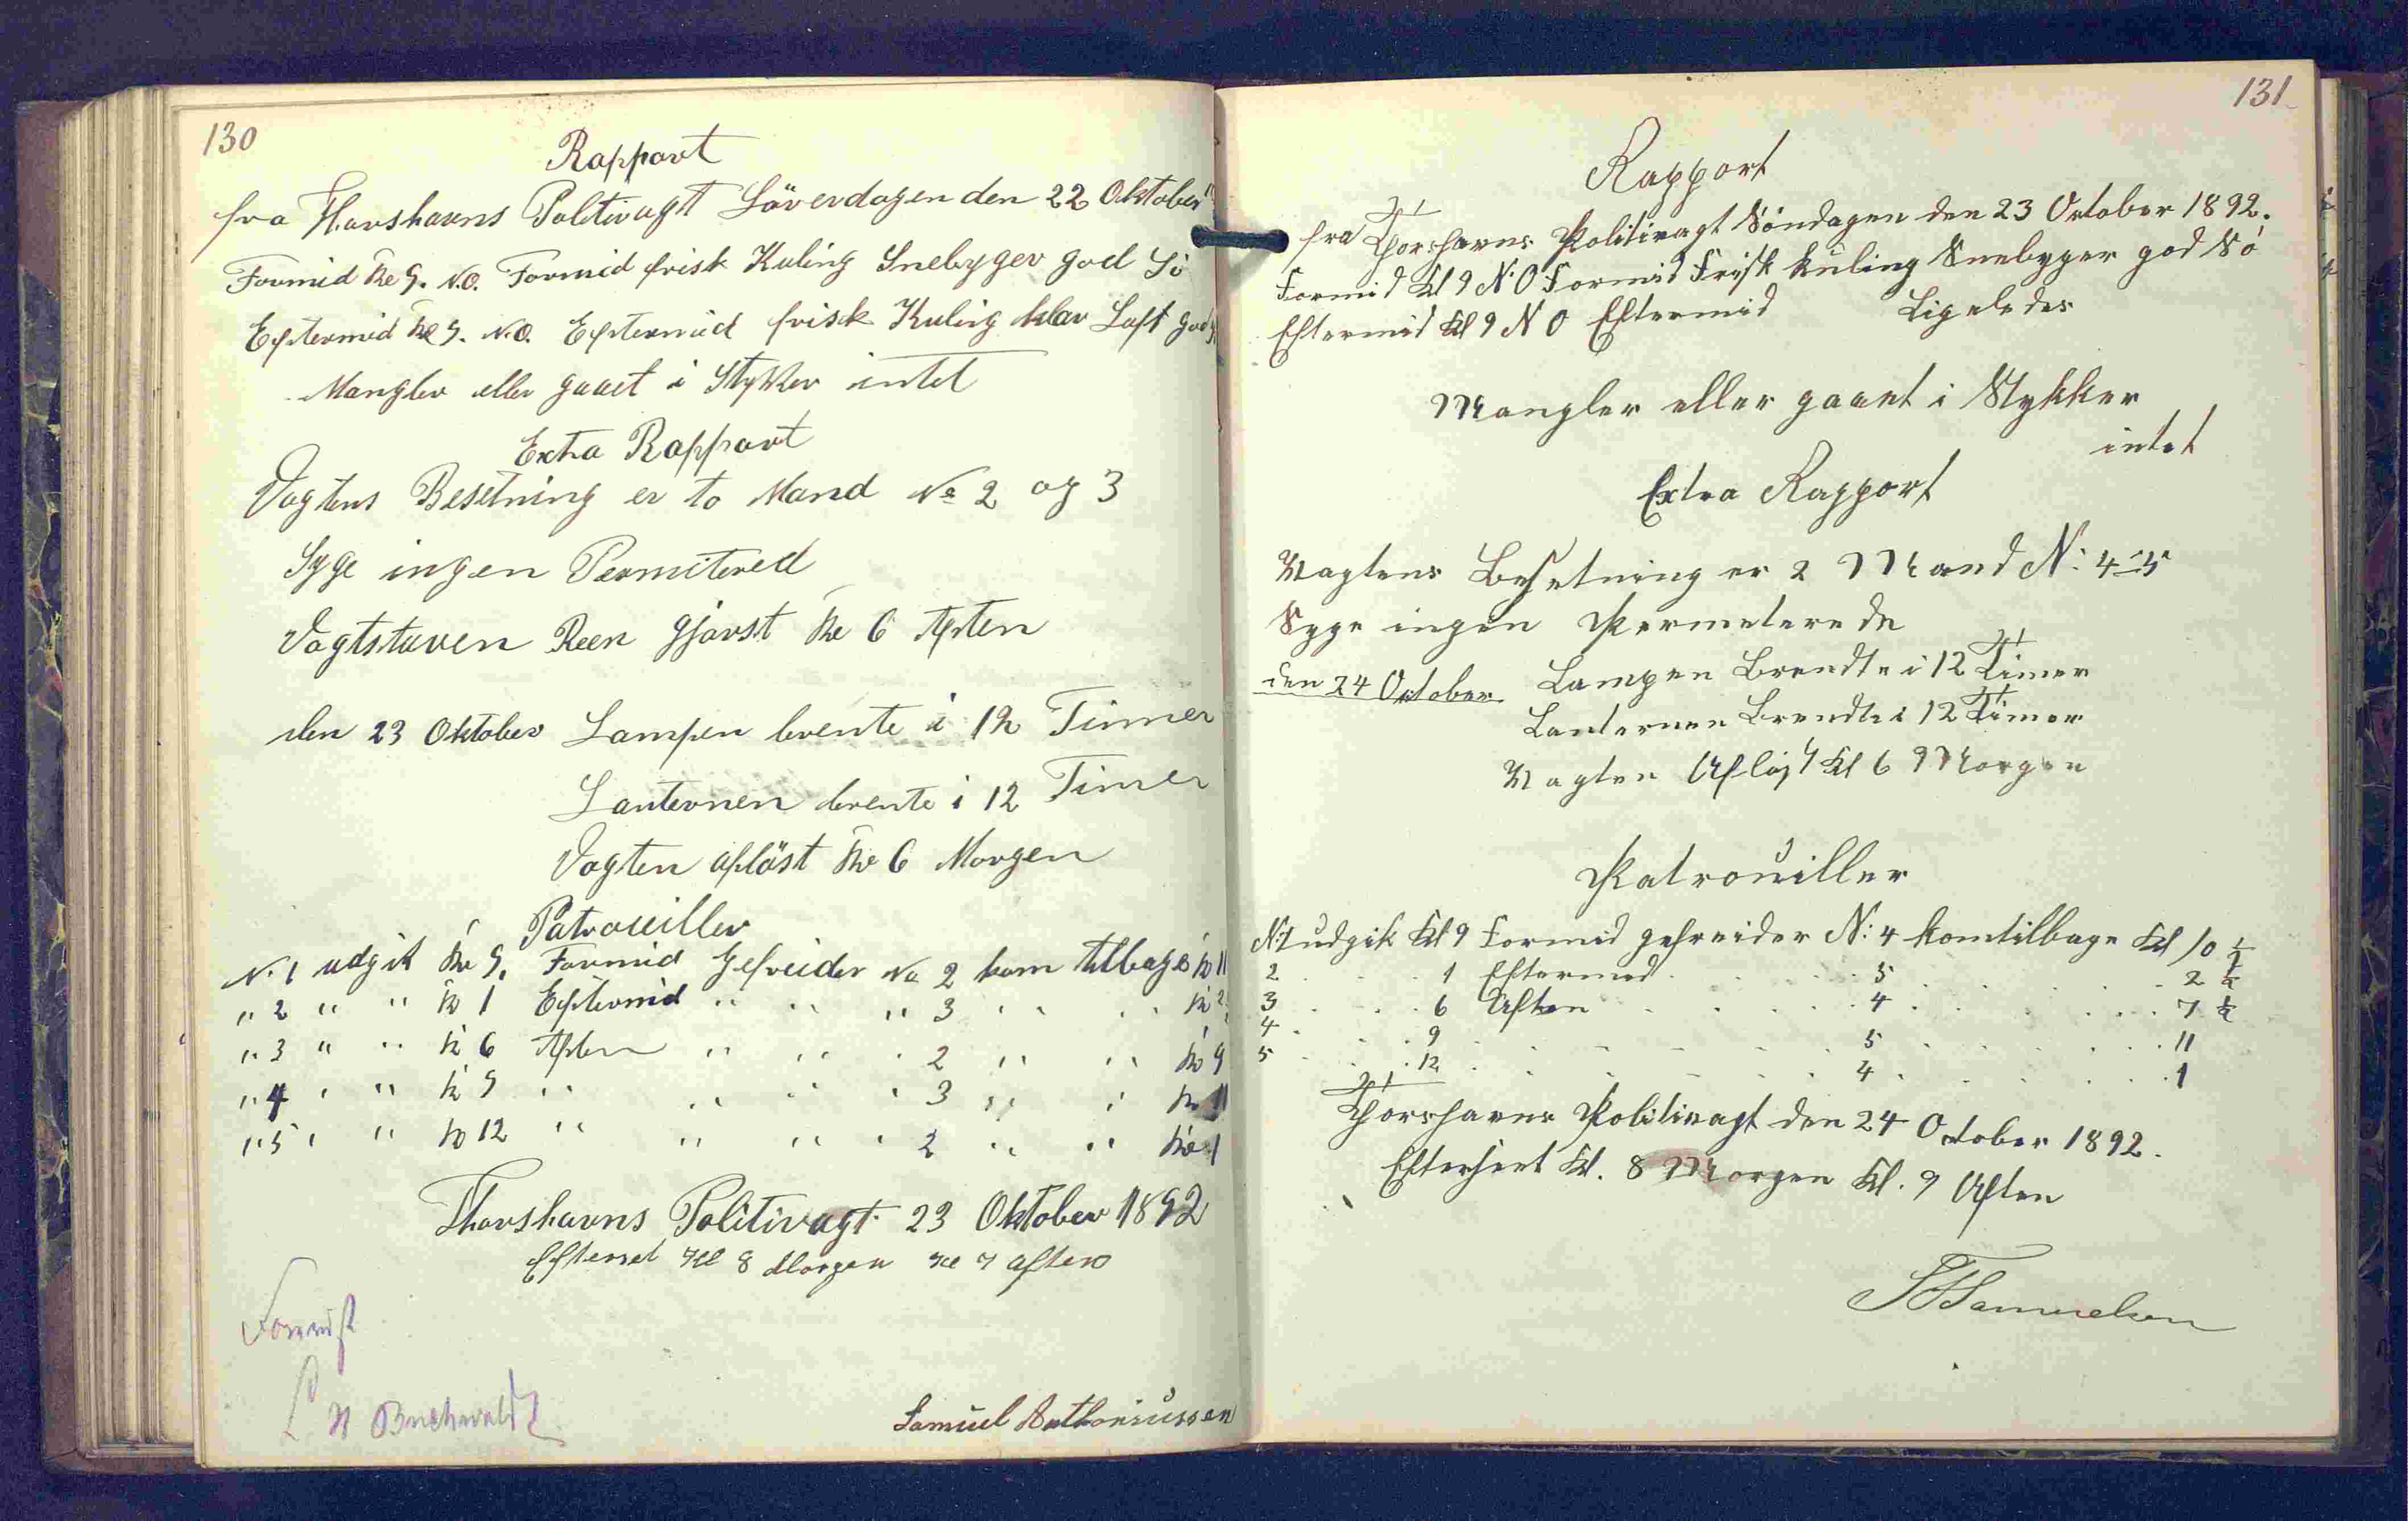 130
Rapport
fra Thorshavns Politivagt Löverdagen den 22 Oktober
Formid Kl 9. N.O. Formid frisk Kuling Snebyger god Sö
Eftermid Kl 9. N.O. Eftermid frisk Kuling klar Luft god
Mangler eller gaaet i Stykker intet
Extra Rapport
Vagtens Besetning er to Mand No 2 og 3
Syge ingen Permitered
Vagtstuven Reen gjörst Kl 6 Aften
den 23 Oktober Lampen brente i 12 Timer
Lanternen brente i 12 Timer
Vagten aflöst Kl 6 Morgen
Patrouiller
N. 1 udgik Kl 9. Formid Gefreider No 2 kom tilbage kl 11
" 2 " " kl 1 Eftermid " " " 3 " " " kl 2
" 3 " " kl 6 Aften " " " 2 " " kl 9
" 4 " " kl 9 " " " " 3 " " kl 11
" 5 " " kl 12 " " " " 2 " " kl 1
Thorshavns Politivagt 23 Oktober 1892
Efterset Kl 8 Morgen Kl 7 aften
L H Buchwaldt
Samuel Anthoniussen
131
Rapport
fra Thorshavns Politivagt Söndagen den 23 October 1892.
Formid Kl 9 N.O Formid Frisk Kuling Snebyger god Sö
Eftermid Kl 9 N O Eftermid Ligeledes
Mangler eller gaaet i Stykker
intet
Extra Rapport
Vagtens Besetning er 2 Mand N: 4-5
Syge ingen Permeterede
den 24 October Lampen Brendte i 12 Timer
Lanternen Brendte i 12 Timer
Vagten Aflöst Kl 6 Morgen
Patrouiller
N: 1 udgik Kl 9 Formid gefreider N: 4 kom tilbage Kl 10 ½
2 . . 1 Eftermid . . . 5 . . . 2 ½
3 . . 6 Aften . . . 4 . . . 7 ½
4 . . 9 . . . 5 . . . 11
5 . . 12 . . . 4 . . . 1
Thorshavns Politivagt den 24 October 1892.
Efterseet Kl. 8 Morgen Kl. 9 Aften
Samuelsen